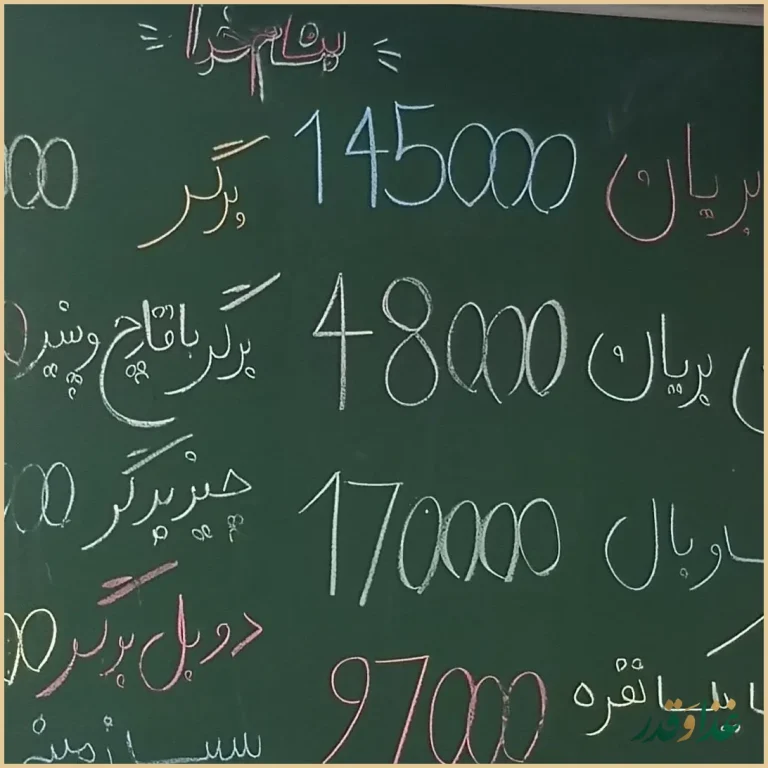 بنام خدا
بریان 145000 برگر 00
بریان 48000 برگر با قارچ و پنیر
و بال 170000 چیزبرگر 00
نفره 97000 دوبل برگر 00
غذا و قدر